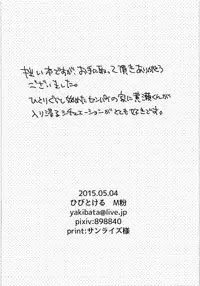 拙い本ですが、お手に取って頂きありがとう
ございました。
ひとりぐらし始めたセンパイの家に黄瀬くんが
入り浸るシチュエーションがとても好きです。
2015.05.04
ひびとける M粉
yakibata@live.jp
pixiv:898840
print:サンライズ様